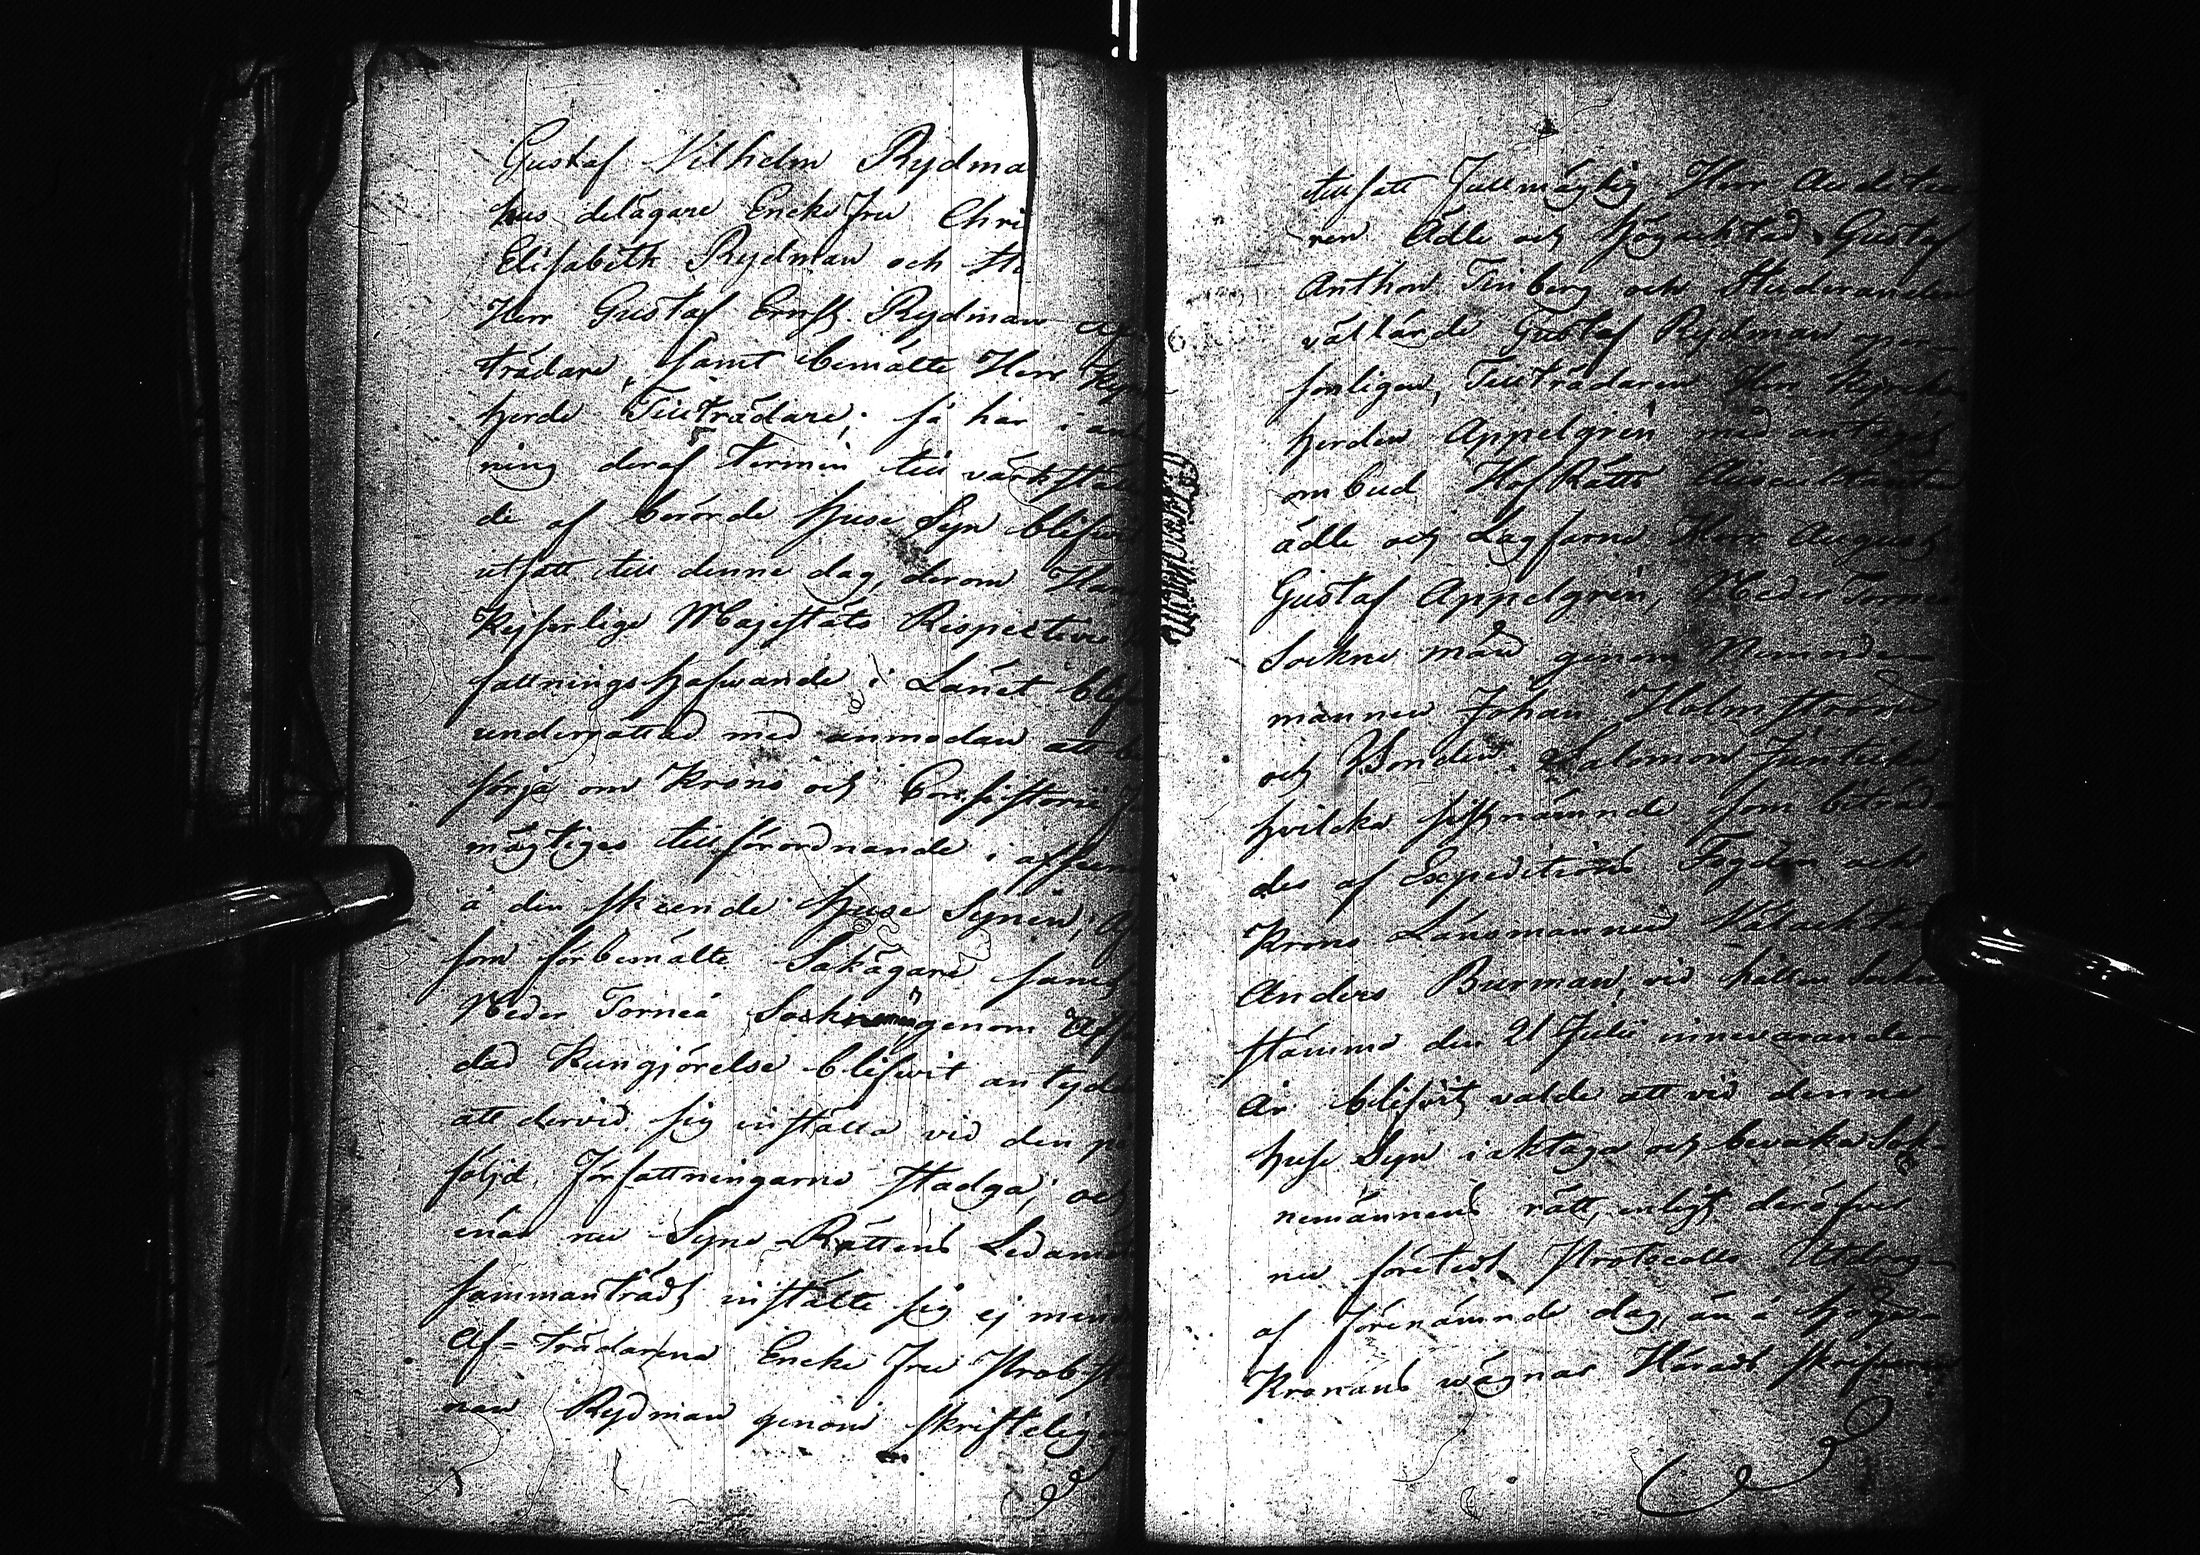 Gustaf Vilhelm Rydma
hus delägare Encke Fru Chri
Elisabeth Rydman och
Herr Gustaf Ernst Rydman
trädare, samt bemälte Herr Kyr
herde Tillträdare; så har i an
ning deraf termin till värkstäl
de af berörde Huse Syn blifwit
utsatt till denne dag, derom
Kejserlige Majestäts Respective
fattningshafwande i Länet blif
underrättad med anmodan att be
sörja om Krono och Consistorii
mägtiges tillförordnande i afse
å den skeende Huse Synen;
som förbemälte Sakägare samt
Neder Torneå Sockn genom
dad Kungjörelse blifwit antyde
att dervid sig inställa vid den
följd, Författningarne stadga; och
enär nu Syne-Rättens Ledamö
sammanträdt instälte sig ej mind
Af-trädarena Encke Fru Probst
nan Rydman genom skrifteligen
tillsatt Fullmägtig Herr Auditeu
ren Ädle och Högachtad Gustaf
Anthon Tinberg och Studeranden
vällärde Gustaf Rydman
sonligen, Tillträdaren Herr Kyrcko
herden Appelgrén med antaget
ombud HofRätts Auscultanten
ädle och Lagfarne Herr August
Gustaf Appelgrén, Neder Torneå
Sockne män genom Nemnde
mannen Johan Holmström
och Bonden Salomon
hvilcka sistnämnde som biträd
des af Expeditions Fogden och
Krono Länsmannen Välachtad
Anders Burman, vid hållen Sockne
stämma den 21 Julii innevarande
År blifvit valde att vid denne
Huse Syn iakttaga och bevaka Sock
nemännens rätt, enligt deröfver
nu företedt Protocolls Utdrag
af förenämnde dag, än å höga
Kronans wägnar Härads skrifvaren